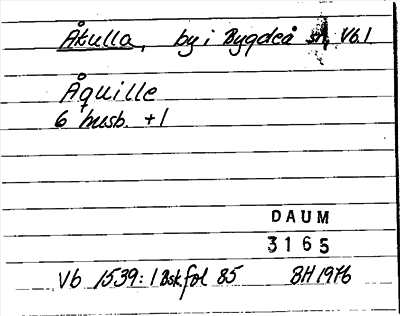 Åkulla, by i Bygdeå sn, Vb.
Åquille
6 husb. +1
DAUM
3165
Vb 1539: 1 Bsk fol 85 BH 1976